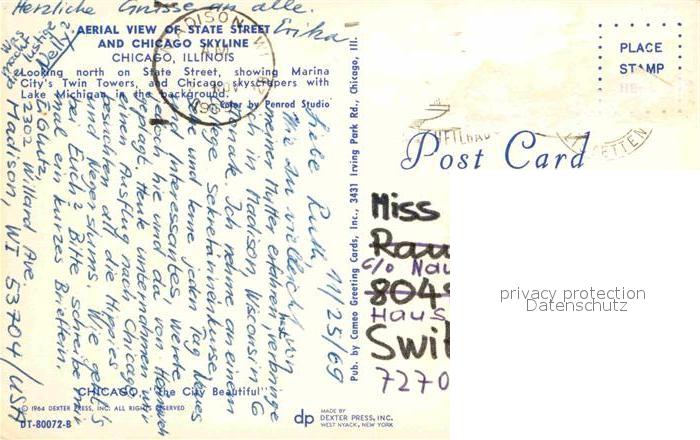 Herzliche Grüsse an alle.
Erika
Was
macht
die lustige
Nelly?
AERIAL VIEW OF STATE STREET
AND CHICAGO SKYLINE
CHICAGO, ILLINOIS
Looking north on State Street, showing Marina
City's Twin Towers, and Chicago skyscrapers with
Lake Michigan in the background.
Color by Penrod Studio
MADISON, WI
PM
1969
11/25/69
Liebe Ruth
Wie du vielleicht von
meiner Mutter erfahren, verbringe
ich in Madison, Wisconsin, 6
Monate. Ich nehme an einem
College Sekretärinnenkurse
und lerne jeden Tag Neues
und Interessantes. Werde
doch hie und da von Heimweh
geplagt. Heute unternehmen wir
einen Ausflug nach Chicago,
besuchen all die Hippies
und Negerslums. Wie geht's
bei Euch? Bitte schreibe mir
mal ein kurzes Brieflein.
2302 Willard Ave.
Madison, WI 53704/USA
CHICAGO, "the City Beautiful"
© 1964 DEXTER PRESS, INC. ALL RIGHTS RESERVED
DT-80072-B
Pub. by Cameo Greeting Cards, Inc., 3431 Irving Park Rd., Chicago, Ill.
dp
MADE BY
DEXTER PRESS, INC.
WEST NYACK, NEW YORK
PLACE
STAMP
HE
Post Card
Miss
Rau
c/o Nau
8049
Haus
Swit
7270
privacy protection
Datenschutz